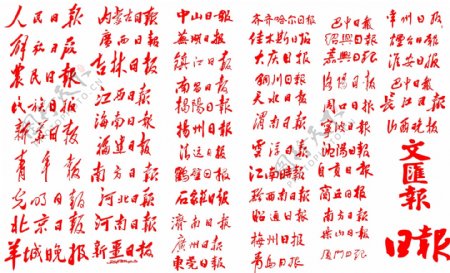 人民日报
解放日报
农民日报
民族日报
新华日报
青年报
光明日报
北京日报
羊城晚报
内蒙古日报
广西日报
吉林日报
江西日报
海南日报
福建日报
南方日报
河北日报
河南日报
新疆日报
中山日报
芜湖日报
镇江日报
南昌日报
揭阳日报
扬州日报
清远日报
鹤壁日报
石家庄日报
济南日报
广州日报
东莞日报
齐齐哈尔日报
佳木斯日报
大庆日报
铜川日报
天水日报
渭南日报
江门日报
黔西南日报
昭通日报
梅州日报
青岛日报
巴中日报
绍兴日报
嘉兴日报
洛阳日报
周口日报
宁波日报
沈阳日报
自贡日报
商丘日报
南方日报
泰山日报
厦门日报
常州日报
烟台日报
淮安日报
巴中晚报
长江日报
山西晚报
文匯報
日报